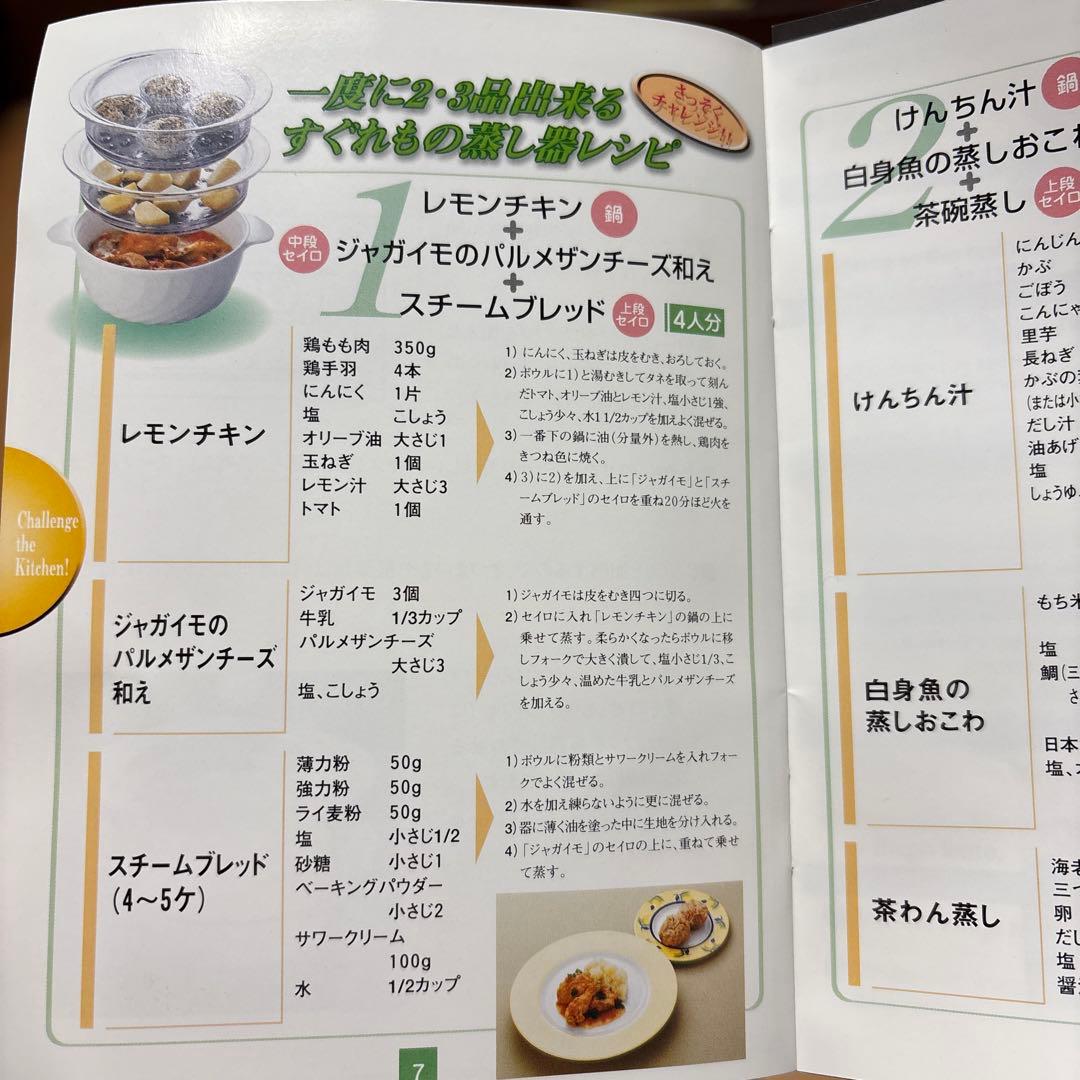 一度に2・3品出来る
すぐれもの蒸し器レシピ
さっそく
チャレンジ!!
1
レモンチキン 鍋
+
中段
セイロ
ジャガイモのパルメザンチーズ和え
+
スチームブレッド
上段
セイロ
4人分
レモンチキン
鶏もも肉 350g
鶏手羽 4本
にんにく 1片
塩 こしょう
オリーブ油 大さじ1
玉ねぎ 1個
レモン汁 大さじ3
トマト 1個
1) にんにく、玉ねぎは皮をむき、おろしておく。
2) ボウルに1)と湯むきしてタネを取って刻ん
だトマト、オリーブ油とレモン汁、塩小さじ1強、
こしょう少々、水1 1/2カップを加えよく混ぜる。
3) 一番下の鍋に油(分量外)を熱し、鶏肉を
きつね色に焼く。
4) 3)に2)を加え、上に「ジャガイモ」と「スチ
ームブレッド」のセイロを重ね20分ほど火を
通す。
Challenge
the
Kitchen!
ジャガイモの
パルメザンチーズ
和え
ジャガイモ 3個
牛乳 1/3カップ
パルメザンチーズ
大さじ3
塩、こしょう
1) ジャガイモは皮をむき四つに切る。
2) セイロに入れ「レモンチキン」の鍋の上に
乗せて蒸す。柔らかくなったらボウルに移
しフォークで大きく潰して、塩小さじ1/3、こ
しょう少々、温めた牛乳とパルメザンチーズ
を加える。
スチームブレッド
(4〜5ケ)
薄力粉 50g
強力粉 50g
ライ麦粉 50g
塩 小さじ1/2
砂糖 小さじ1
ベーキングパウダー
小さじ2
サワークリーム
100g
水 1/2カップ
1) ボウルに粉類とサワークリームを入れフォー
クでよく混ぜる。
2) 水を加え練らないように更に混ぜる。
3) 器に薄く油を塗った中に生地を分け入れる。
4) 「ジャガイモ」のセイロの上に、重ねて乗せ
て蒸す。
7
2
けんちん汁 鍋
+
白身魚の蒸しおこわ
+
茶碗蒸し
上段
セイロ
けんちん汁
にんじん
かぶ
ごぼう
こんにゃ
里芋
長ねぎ
かぶの
(または小
だし汁
油あげ
塩
しょうゆ
白身魚の
蒸しおこわ
もち米
塩
鯛(三
さ
日本
塩、
茶わん蒸し
海老
三つ
卵
だし
塩
醤